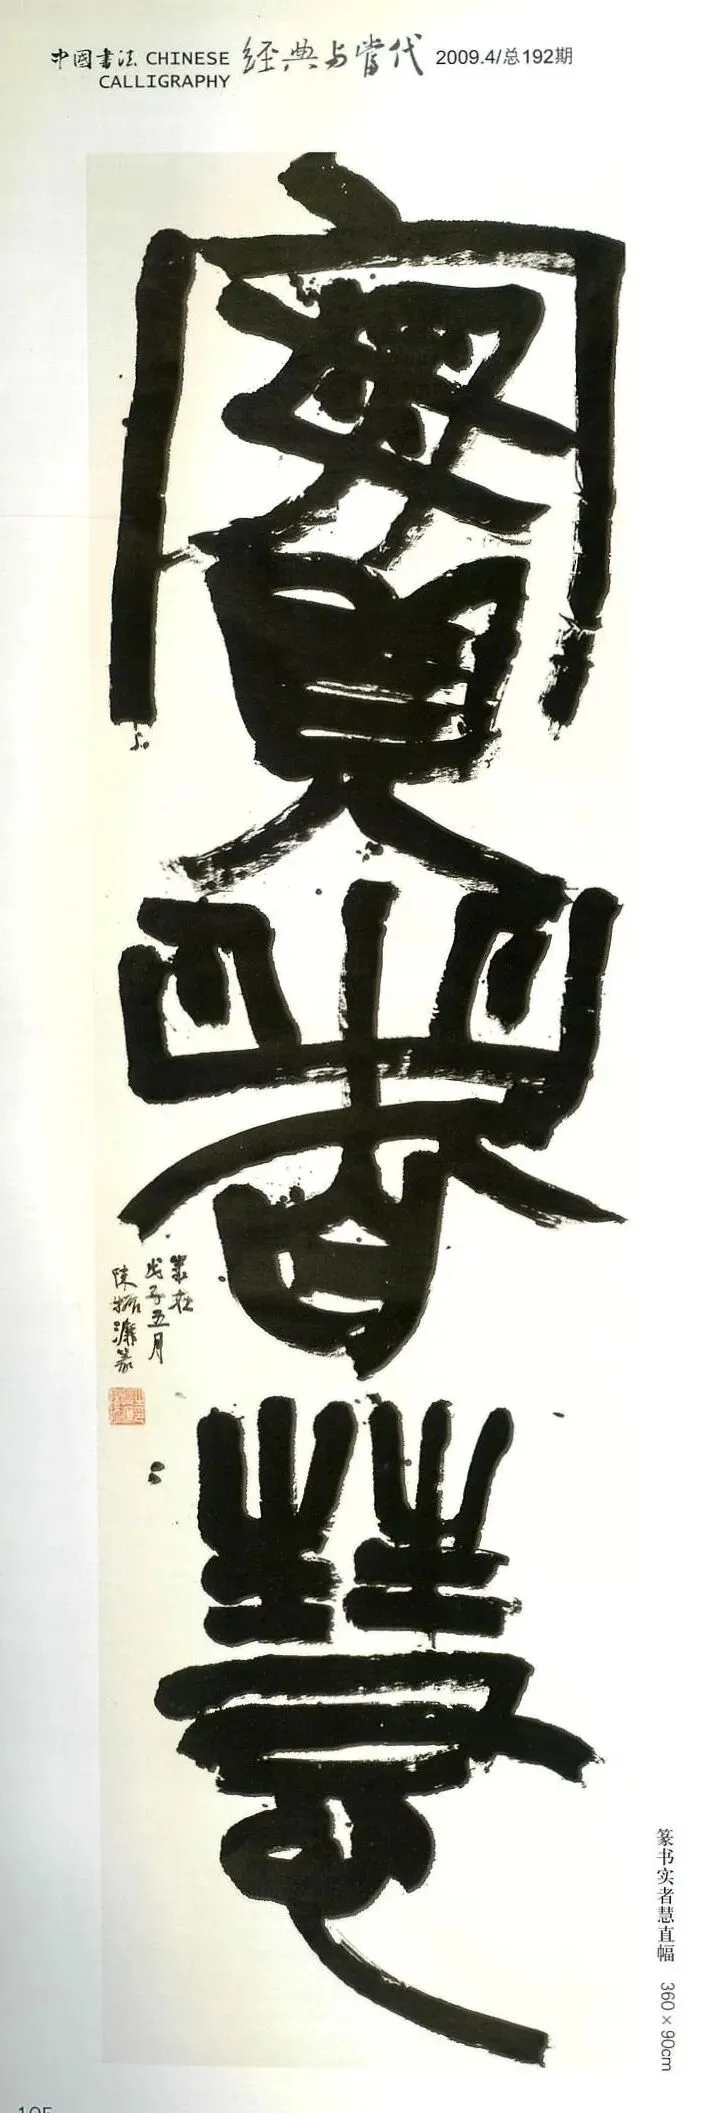 中國書法 CHINESE
CALLIGRAPHY
经典与当代
2009.4/总192期
實者慧
歲在
戊子五月
陳振濂篆
篆书实者慧直幅 360×90cm
105